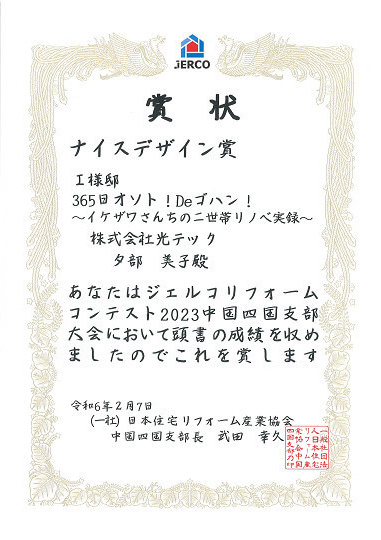 JERCO
賞状
ナイスデザイン賞
I様邸
365日オソト！Deゴハン！
～イケザワさんちの二世帯リノベ実録～
株式会社光テック
夕部 美子殿
あなたはジェルコリフォーム
コンテスト2023中国四国支部
大会において頭書の成績を収め
ましたのでこれを賞します
令和6年2月7日
(一社)日本住宅リフォーム産業協会
中国四国支部長 武田 幸久
一般社団法
人日本住宅
リフォーム産
業協会中国
四国支部乃印